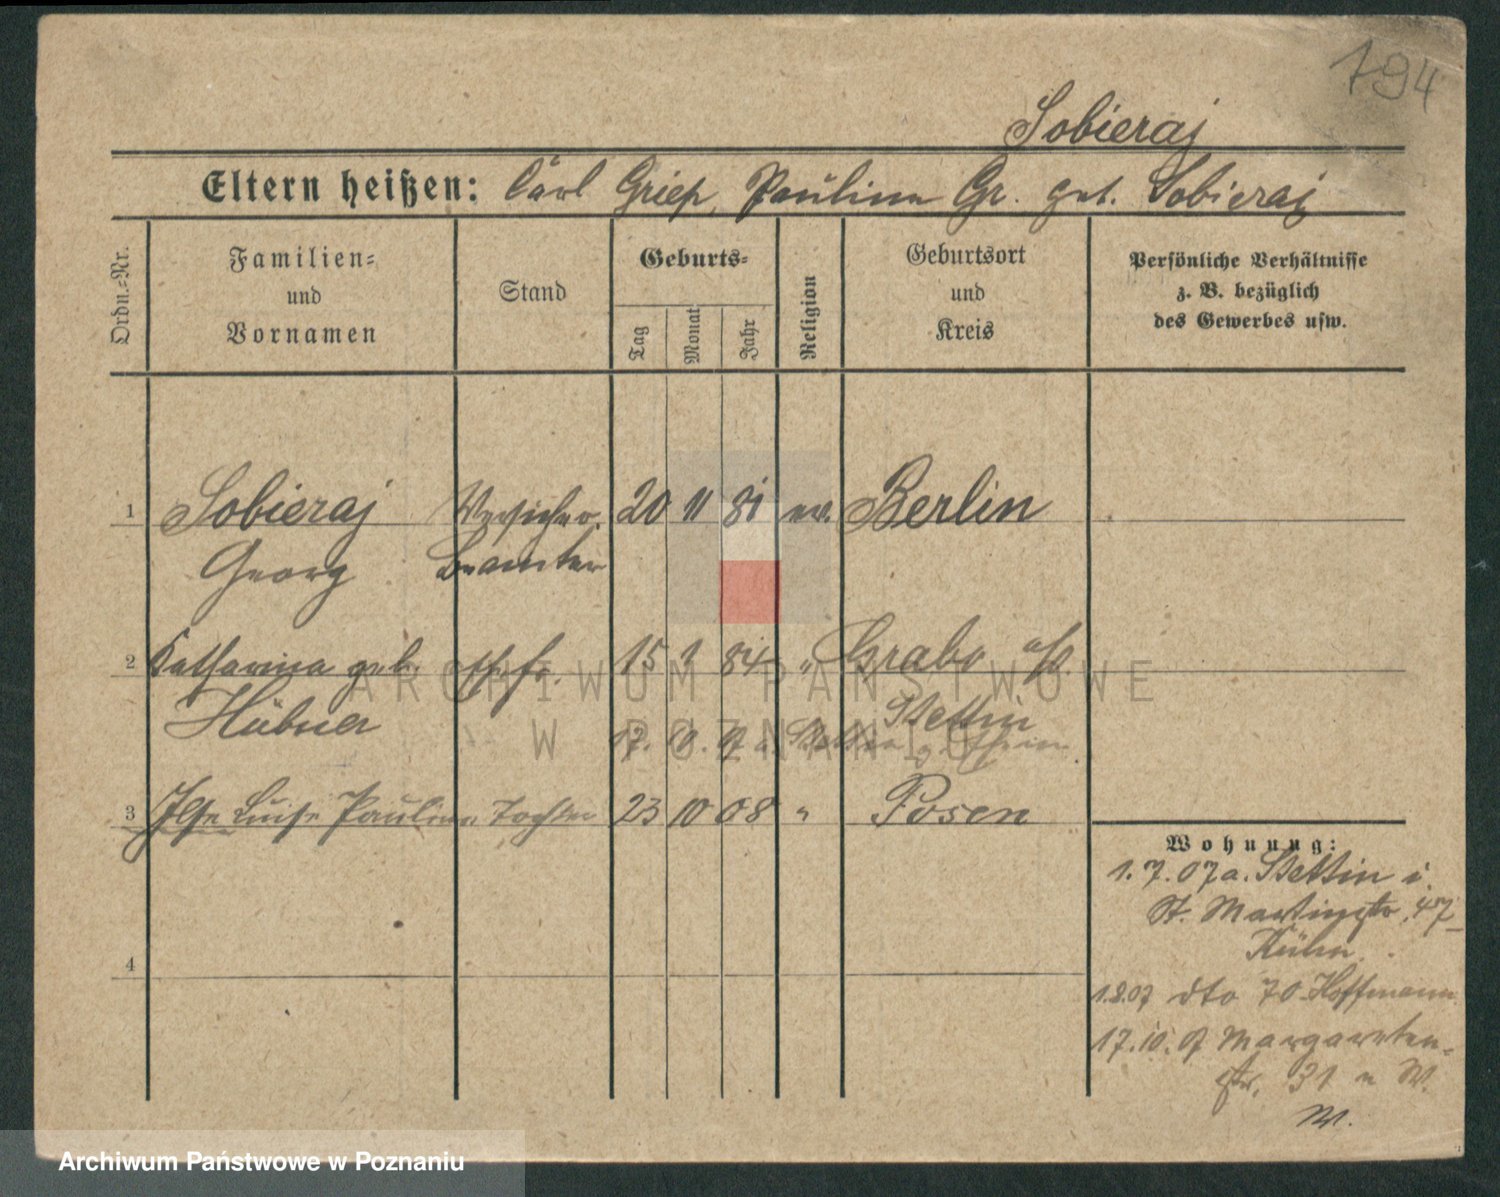 194
Sobieraj
Eltern heißen: Carl Griep, Pauline Gr. geb. Sobieraj
Ordn.-Nr.
Familien-
und
Vornamen
Stand
Geburts-
Tag
Monat
Jahr
Religion
Geburtsort
und
Kreis
Persönliche Verhältnisse
z. B. bezüglich
des Gewerbes usw.
1 Sobieraj Versicher. 20 11 81 ev. Berlin
Georg Beamter
2 Katharina geb. Ehefr. 15 1 84 " Grabo a/O.
Hübner Stettin
17. 10. 07 a. Stettin
3 Ilse Luise Pauline Tochter 23 10 08 " Posen
4
Wohnung:
1.7.07 a. Stettin i.
St. Martinstr. 47
Kühn
1.8.07 dto 70 Hoffmann
17.10.07 Margareten-
str. 31 W.
ARCHIWUM PAŃSTWOWE
W POZNANIU
Archiwum Państwowe w Poznaniu